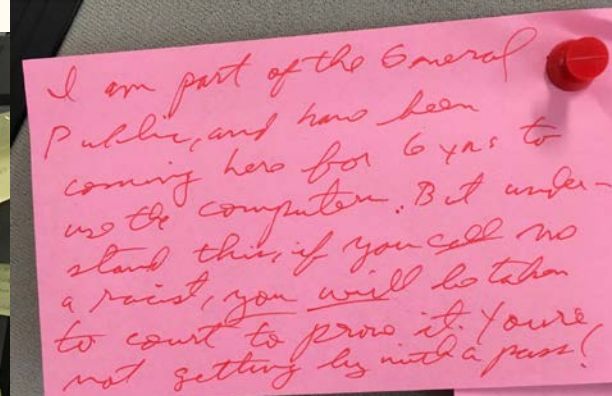 I am part of the General
Public, and have been
coming here for 6 yrs to
use the computer. But under-
stand this, if you call me
a racist, you will be taken
to court to prove it. Youre
not getting by with a pass!